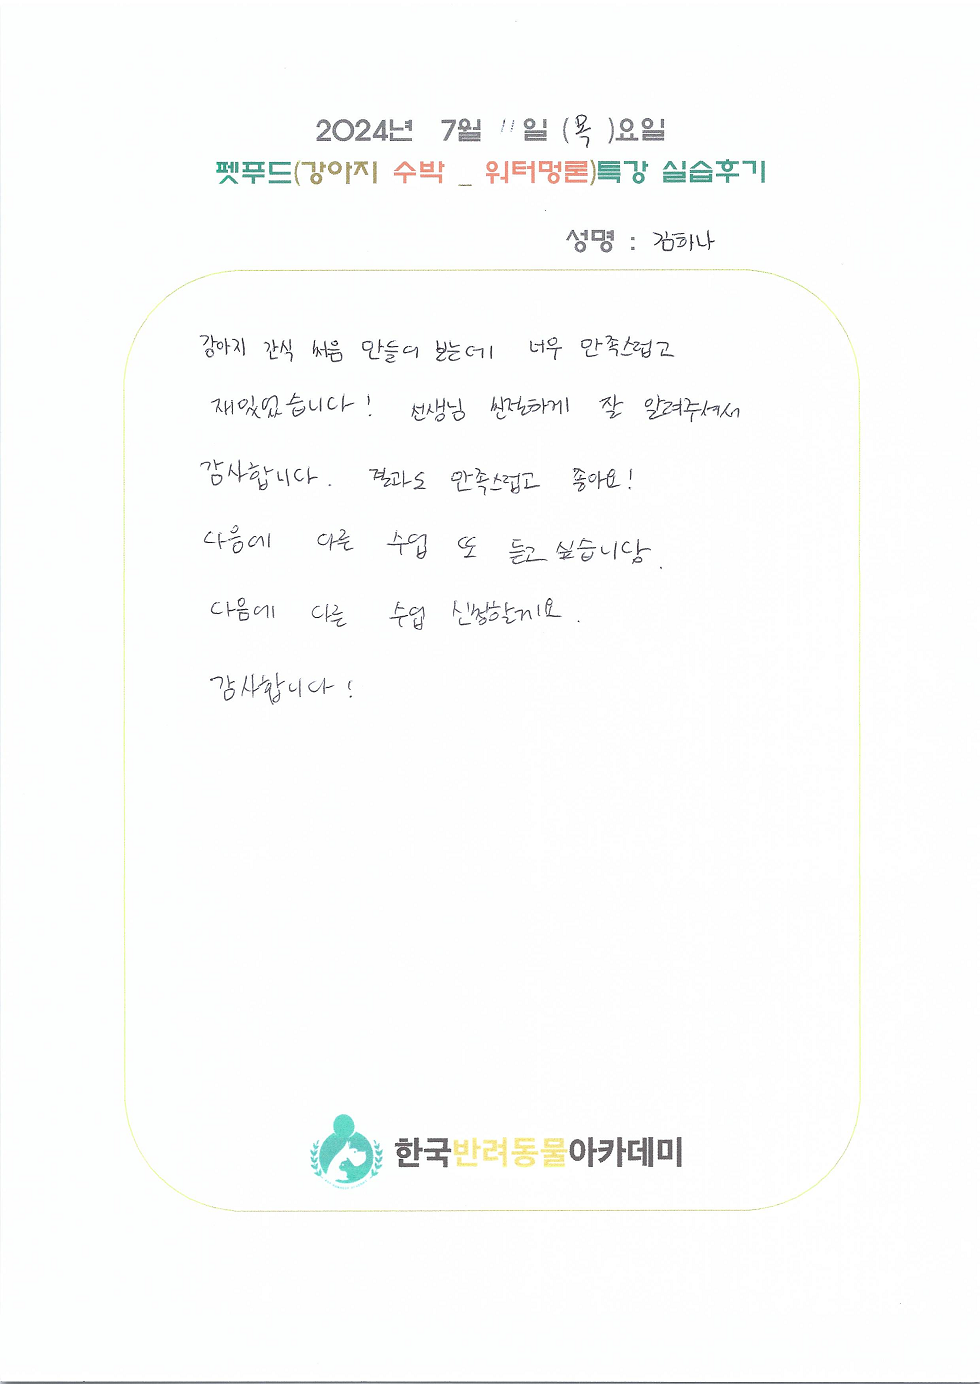 2024년 7월 11일 (목)요일
펫푸드(강아지 수박 _ 워터멍론)특강 실습후기
성명 : 김하나
강아지 간식 처음 만들어 보는데 너무 만족스럽고
재밌었습니다! 선생님 친절하게 잘 알려주셔서
감사합니다. 결과도 만족스럽고 좋아요!
다음에 다른 수업 또 듣고 싶습니당.
다음에 다른 수업 신청할게요.
감사합니다!
한국반려동물아카데미